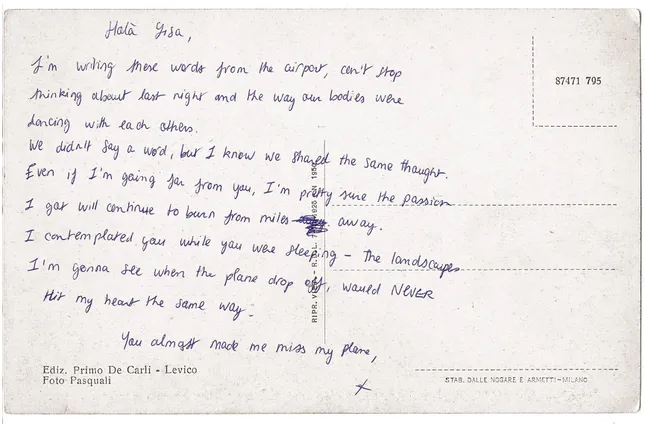 Halà Gisa,
I'm writing these words from the airport, can't stop
thinking about last night and the way our bodies were
dancing with each others.
We didn't say a word, but I know we shared the same thought.
Even if I'm going far from you, I'm pretty sure the passion
I got will continue to burn from miles away.
I contemplated you while you were sleeping – the landscapes
I'm gonna see when the plane drop off, would NEVER
Hit my heart the same way.
You almost made me miss my plane,
x
87471 795
RIPR. VIET.
Ediz. Primo De Carli - Levico
Foto Pasquali
STAB. DALLE NOGARE E ARMETTI-MILANO